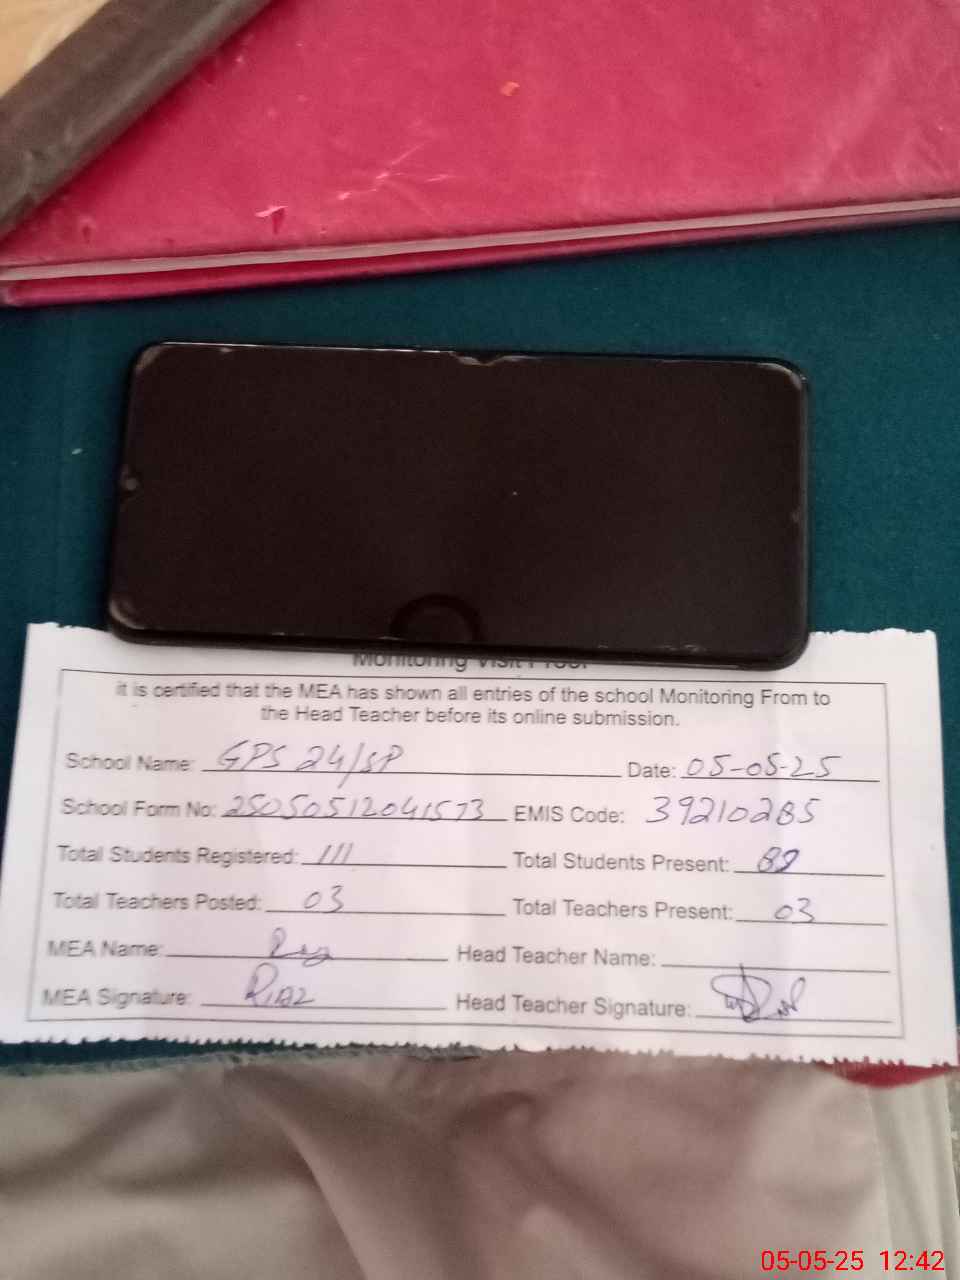 Monitoring Visit Proof
it is certified that the MEA has shown all entries of the school Monitoring From to
the Head Teacher before its online submission.
School Name: GPS 24/SP Date: 05-05-25
School Form No: 25050512041573 EMIS Code: 39210285
Total Students Registered: 111 Total Students Present:
Total Teachers Posted: 03 Total Teachers Present: 03
MEA Name: Head Teacher Name:
MEA Signature: Riaz Head Teacher Signature:
05-05-25 12:42